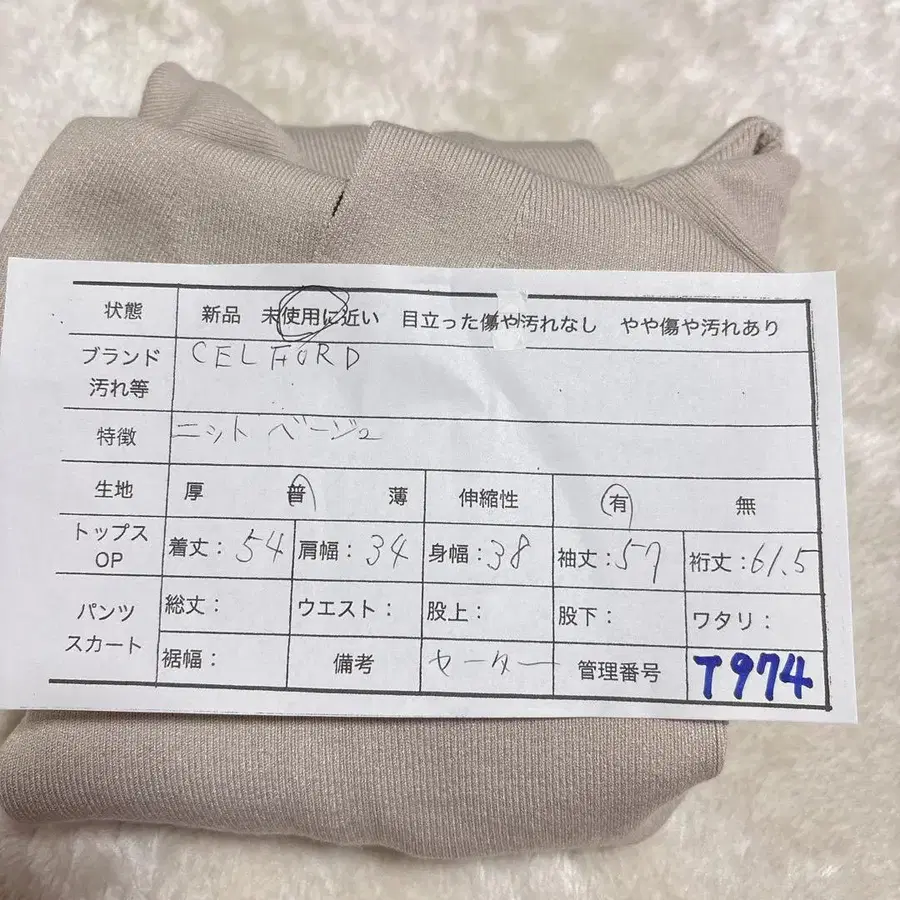 状態 新品 未使用に近い 目立った傷や汚れなし やや傷や汚れあり
ブランド CELFORD
汚れ等
特徴 ニット ベージュ
生地 厚 普 薄 伸縮性 有 無
トップス
OP 着丈:54 肩幅:34 身幅:38 袖丈:57 裄丈:61.5
パンツ
スカート 総丈: ウエスト: 股上: 股下: ワタリ:
裾幅: 備考 セーター 管理番号 T974